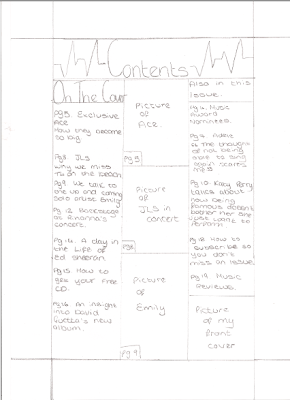 Contents
On The Cover
Pg5 Exclusive
Ace
How they become
so big
Pg8 JLS
why we miss
Pg9 We talk to
the up and coming
Solo cruise Emily
Pg 12 Backstage
at Rihanna's
concert.
Pg 14 A day in
the life of
ed sheeran
Pg 15 How to
get your free
CD.
Pg 16 An insight
into David
Guetta's new
album.
Picture
of
Ace.
Pg 5
Picture
of
JLS in
concert
Pg8
Picture
of
Emily
Pg 9
Also in this
issue.
Music
Award
Nominees.
the thought
of not being
able to sing
Pg 10 Katy Perry
talks about
how being
famous doesn't
bother her
just want to
perform
Pg 18 How to
subscribe so
you don't
miss an issue.
Pg 19 Music
Reviews
Picture
of my
front
cover